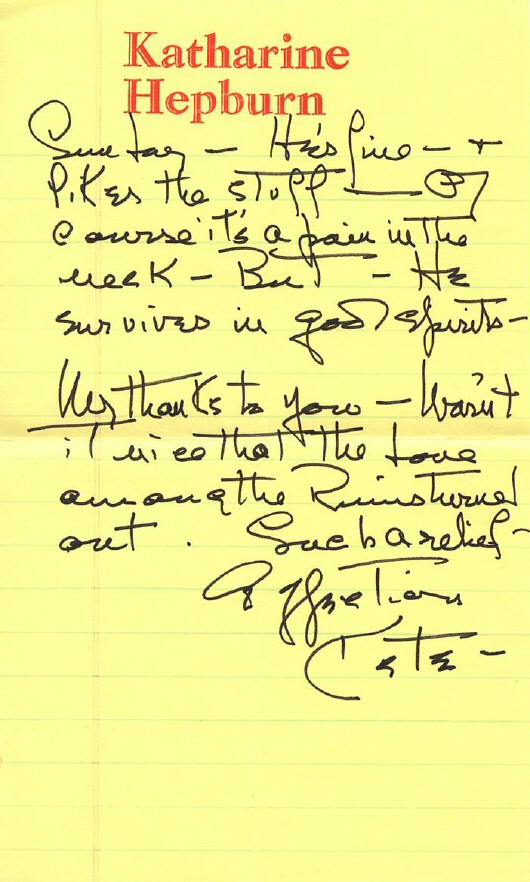 Katharine
Hepburn
Sunday — He's fine — +
likes the stuff — Of
course it's a pain in the
neck — But — He
survives in good spirits —
My thanks to you — Wasn't
it nice that the Love
among the Ruins turned
out . Such a relief —
Affection
Kate —